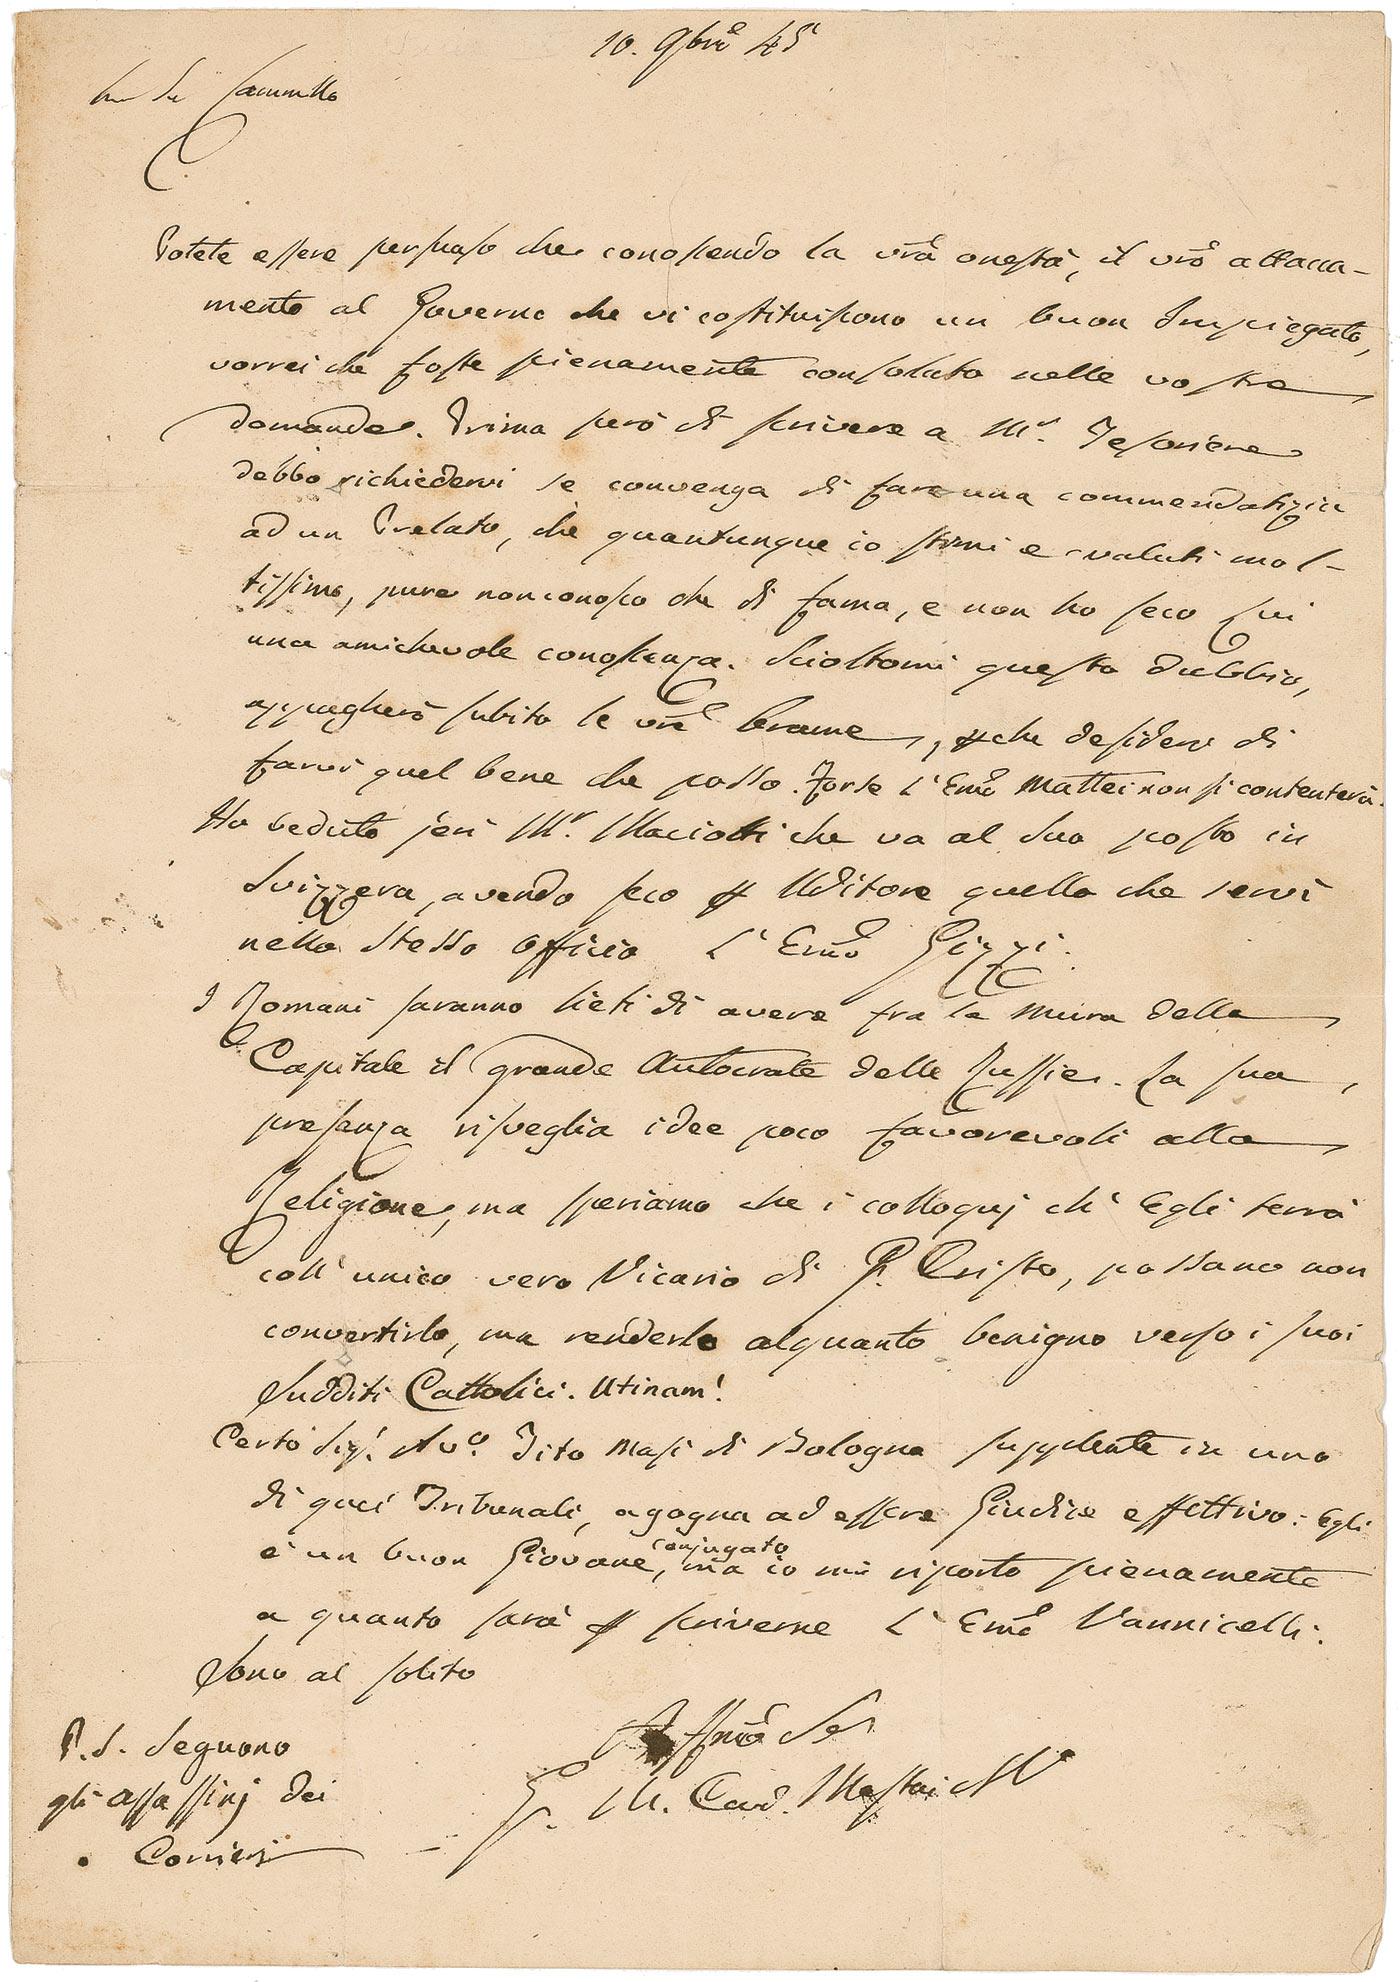 10. 9bre 45
Camillo
Potete essere persuaso che conoscendo la vrã onestà, il vrõ attacca-
mento al Governo che vi costituiscono un buon Impiegato,
vorrei che foste pienamente consolato nelle vostre
domande. Prima però di scrivere a Mr. Tesoriere
debbo richiedervi se convenga di fare una commendatizia
ad un Prelato, che quantunque io stimi e valuti mol-
tissimo, pure non conosco che di fama, e non ho seco lui
una amichevole conoscenza. Scioltomi questo dubbio,
appagherò subito le vrẽ brame, che desidero di
farvi quel bene che posso. Forse l'Emo Mattei non si contenterà.
Ho veduto jeri Mr. Maciotti che va al suo posto in
Svizzera, avendo seco p Uditore quello che servì
nello stesso officio l'Emo Gizzi.
I Romani saranno lieti di avere fra le mura della
Capitale il grande Autocrate delle Russie. La sua
presenza risveglia idee poco favorevoli alla
Religione, ma speriamo che i colloquj ch'Egli terrà
coll'unico vero Vicario di G. Cristo, possano non
convertirlo, ma renderlo alquanto benigno verso i suoi
sudditi Cattolici. Utinam!
Certo Sigr. Avo. Tito Masi di Bologna supplente in uno
di quei Tribunali, agogna ad essere Giudice effettivo: Egli
conjugato
è un buon Giovane, ma io mi riporto pienamente
a quanto sarà p scriverne l'Emo Vannicelli.
Sono al solito
Affmo Se
G. M. Card. Mastai
P.S. Seguono
gli assassinj dei
Corrieri